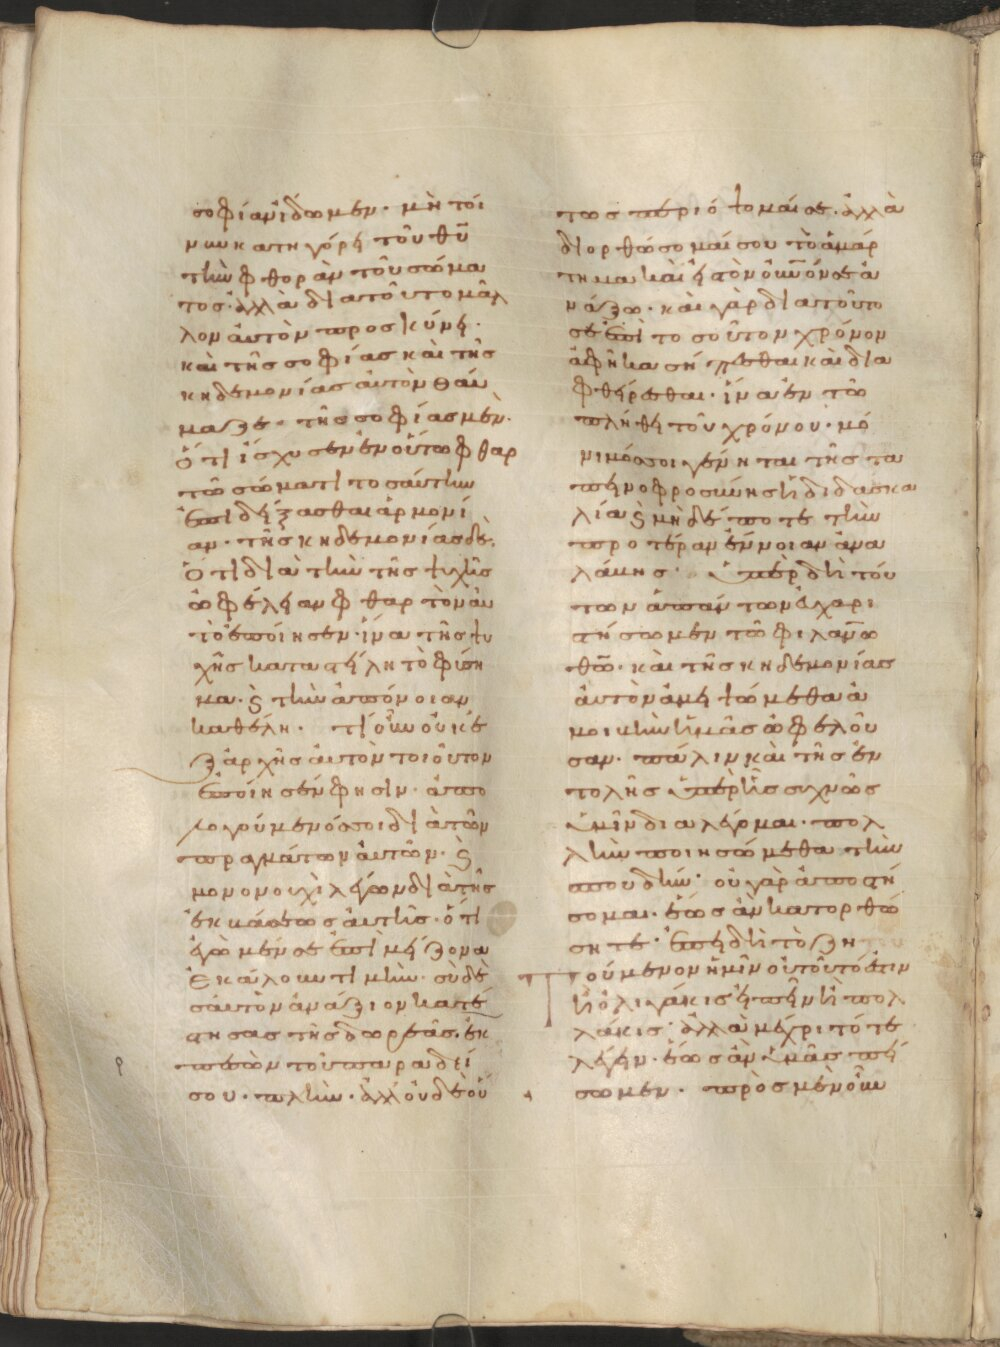 σοφίαν ἴδωμεν· μὴ τοί
νυν κατηγόρει τοῦ θῦ
τὴν φθορὰν τοῦ σώμα
τος· ἀλλὰ διατοῦτο μᾶλ
λον αὐτὸν προσκύνει·
καὶ τῆς σοφίας καὶ τῆς
κηδεμονίας αὐτὸν θαύ
μαζε· τῆς σοφίας μὲν·
ὅτι ἴσχυσεν ἐν οὕτω φθαρ
τῶ σώματι τοσαύτην
ἐπιδείξασθαι ἁρμονί
αν· τῆς κηδεμονίας δὲ,
ὅτι διὰ τὴν τῆς ψυχῆς
ὠφέλειαν φθαρτὸν αὐ
τὸ ἐποίησεν· ἵνα τῆς ψυ
χῆς καταστείλη τὸ φύση
μα· ϗ τὴν ἀπόνοιαν
καθέλη· τί οὖν οὐκ ἐ
ξαρχῆς αὐτὸν τοιοῦτον
ἐποίησέν φησιν· ἀπο
λογούμενός σοι διὰ τῶν
πραγμάτων αὐτῶν· ϗ
μονονουχὶ λέγων διὰ τῆς
ἐκβάσεως αὐτῆς· ὅτι
ἐγὼ μέν σε ἐπὶ μείζονα
ἐκάλουν τιμὴν· σὺ δὲ
σαυτὸν ἀνάξιον κατέ
στησας τῆς δωρεᾶς, ἐκ
πεσὼν τοῦ παραδεί
σου· πλὴν· ἀλλ' οὐδὲ οὕ
τως περιόψομαί σε· ἀλλὰ
διορθώσομαί σου τὸ ἁμάρ
τημα καὶ εἰς τὸν οὐνόν σε ἀ
νάξω· καὶ γὰρ διατοῦτο
σε ἐπὶ τοσοῦτον χρόνον
ἀφῆκα σήπεσθαι καὶ δια
φθείρεσθαι· ἵνα ἐν τῶ
πλήθει τοῦ χρόνου· μό
νιμός σοι γένηται τῆς τα
πεινοφροσύνης ἡ διδασκα
λία ϗ μηδέποτε τὴν
προτέραν ἔννοιαν ἀνα
λάβης· ὑπὲρ δὴ τού
των ἁπάντων εὐχαρι
στήσωμεν τῶ φιλανω
θῶ· καὶ τῆς κηδεμονίας
αὐτὸν ἀμειψώμεθα ἀ
μοιβὴν ἡμᾶς ὠφελοῦ
σαν· πάλιν καὶ τῆς ἐν
τολῆς ὑπὲρ ἧς συχνῶς
ὑμῖν διαλέγομαι· πολ
λὴν ποιησώμεθα τὴν
σπουδήν· οὐ γὰρ ἀποστή
σομαι· ἕως ἂν κατορθώ
σητε· ἐπειδὴ τὸ ζη
τούμενον ἡμῖν οὐ τοῦτό ἐστιν
ἢ ὀλιγάκις εἰπεῖν ἢ πολ
λάκις· ἀλλὰ μέχρι τότε
λέγειν· ἕως ἂν ὑμᾶς πεί
σωμεν· πρὸς μὲν οὖν